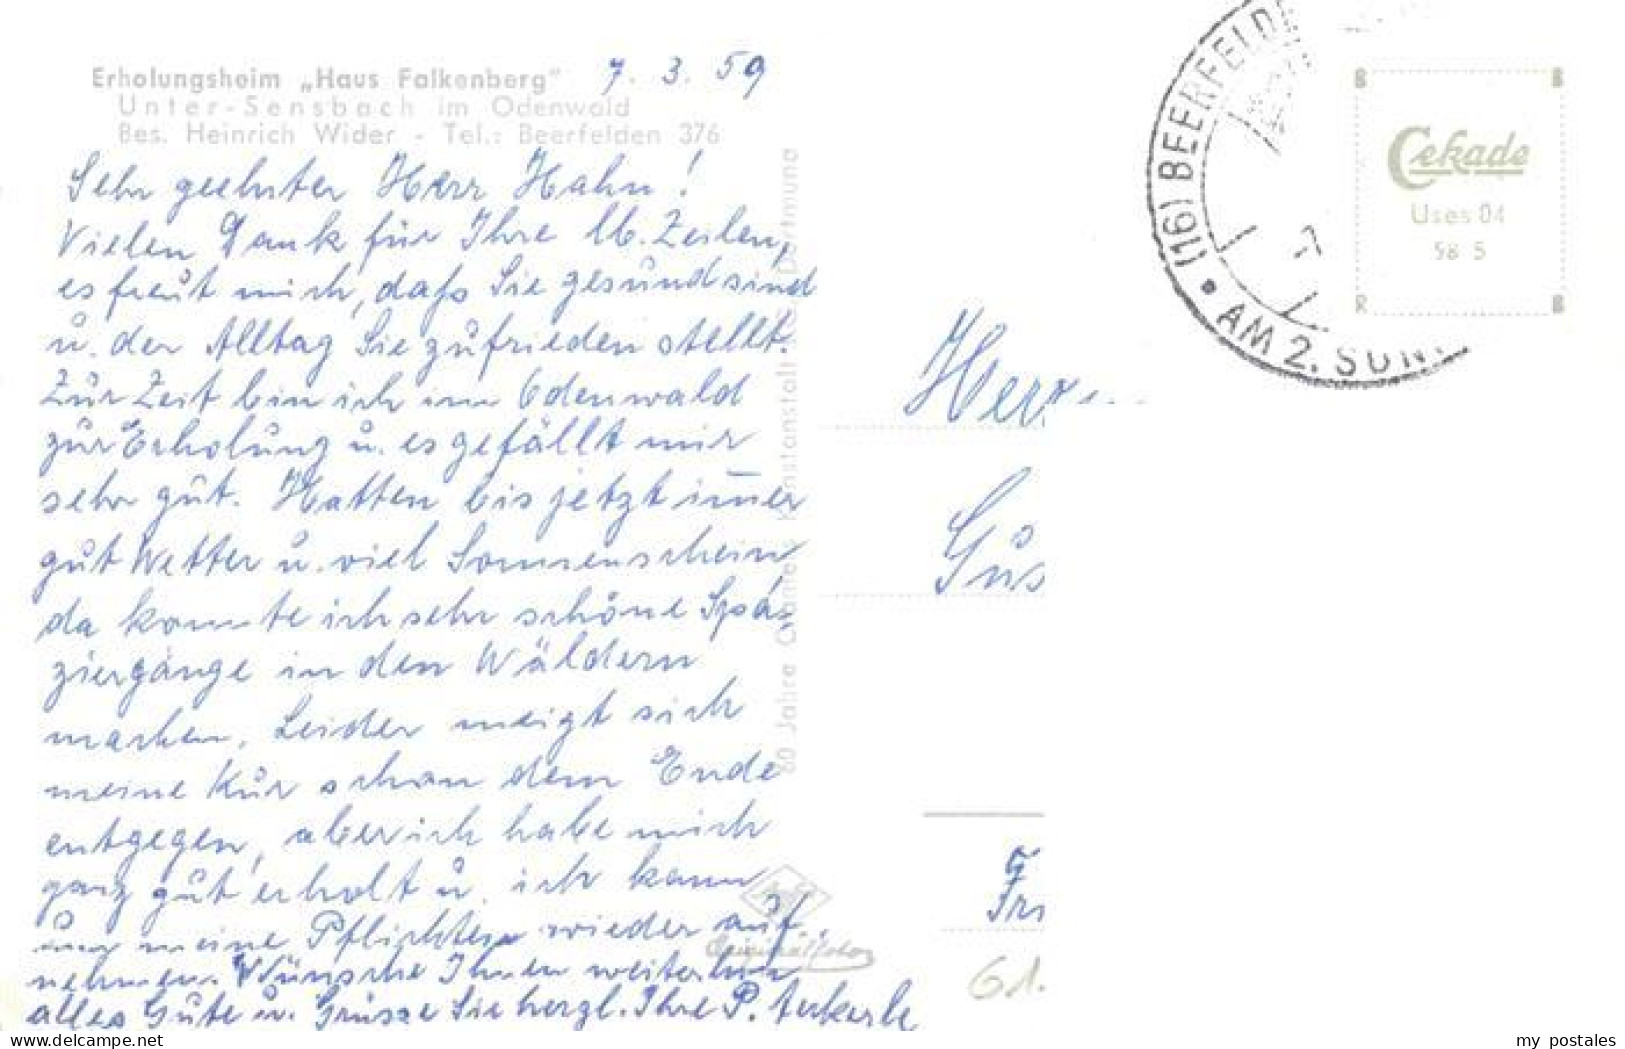 Erholungsheim „Haus Falkenberg"
Unter-Sensbach im Odenwald
Bes. Heinrich Wider - Tel.: Beerfelden 376
7. 3. 59
Sehr geehrter Herr Hahn!
Vielen Dank für Ihre lb. Zeilen,
es freut mich, daß Sie gesund sind
u. der Alltag Sie zufrieden stellt.
Zur Zeit bin ich im Odenwald
zur Erholung u. es gefällt mir
sehr gut. Hatten bis jetzt im̅er
gut Wetter u. viel Sonnenschein
da konnte ich sehr schöne Spa-
ziergänge in den Wäldern
machen. Leider neigt sich
meine Kur schon dem Ende
entgegen, aber ich habe mich
ganz gut erholt u. ich kann
nun meine Pflichten wieder auf-
nehmen. Wünsche Ihnen weiterhin
alles Gute u. Grüsse Sie herzl. Ihre P.
60 Jahre Cramers Kunstanstalt KG Dortmund
Originalfoto
(16) BEERFELDE
AM 2. SONN
-7
Cekade
Uses 04
58 5
B B
R B
Herrn
Gus
61.
my postales
www.delcampe.net